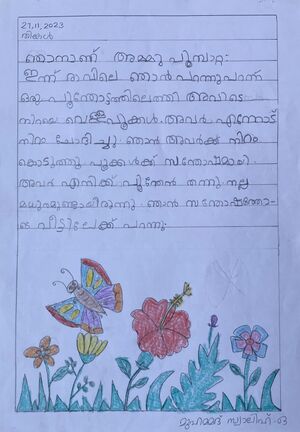 27.11.2023
തിങ്കൾ
ഞാനാണ് അമ്മു പൂമ്പാറ്റ.
ഇന്ന് രാവിലെ ഞാൻ പറന്നുപറന്ന്
ഒരു പൂന്തോട്ടത്തിലെത്തി അവിടെ
നിറയെ വെള്ളപൂക്കൾ. അവർ എന്നോട്
നിറം ചോദിച്ചു. ഞാൻ അവർക്ക് നിറം
കൊടുത്തു. പൂക്കൾക്ക് സന്തോഷമായി.
അവർ എനിക്ക് പൂന്തേൻ തന്നു. നല്ല
മധുരമുണ്ടായിരുന്നു. ഞാൻ സന്തോഷത്തോ-
ടെ വീട്ടിലേക്ക് പറന്നു.
മുഹമ്മദ് സ്വാലിഹ്